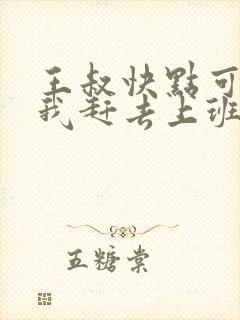 王叔快點可
我赶去上班
五糖棠